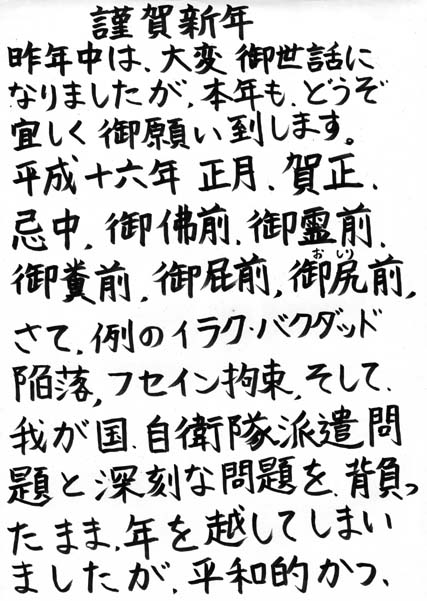 謹賀新年
昨年中は、大変 御世話に
なりましたが、本年も、どうぞ
宜しく御願い到します。
平成十六年 正月、賀正、
忌中、御佛前、御霊前、
御糞前、御屁前、御尻前、
おいり
さて、例のイラク・バクダッド
陥落、フセイン拘束、そして、
我が国、自衛隊派遣問
題と深刻な問題を、背負っ
たまま、年を越してしまい
ましたが、平和的かつ、